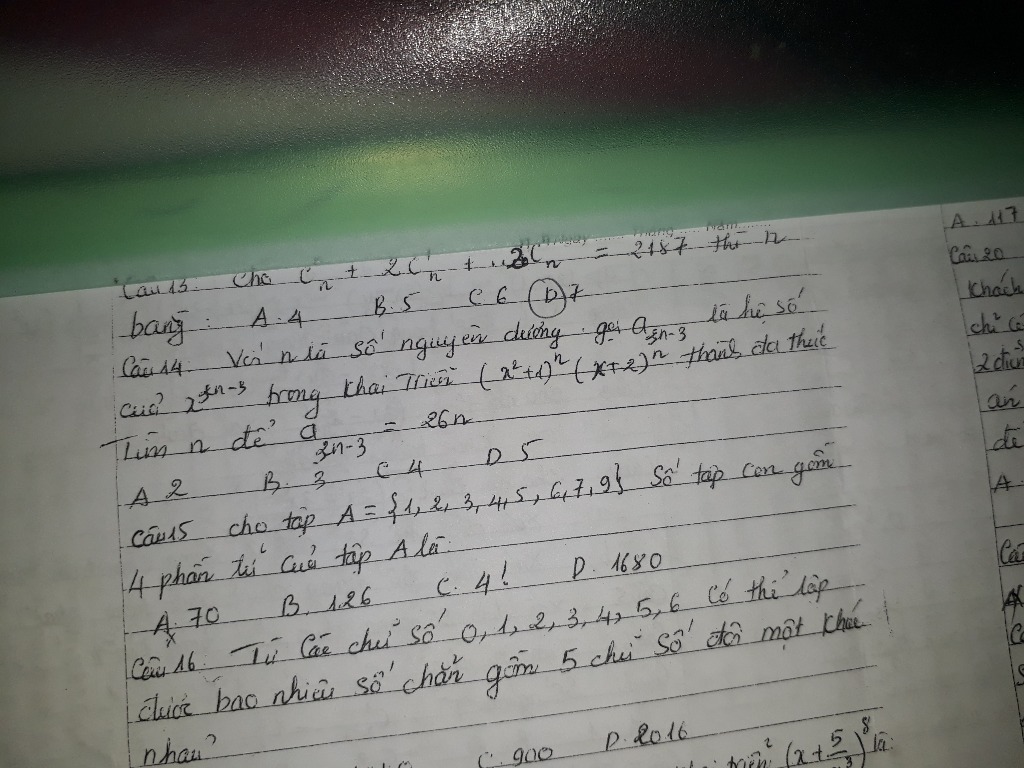 Câu 13. Cho C⁰ₙ + 2C¹ₙ + ... Cₙ = 2187 thì n
bằng: A. 4 B. 5 C 6 D 7
Câu 14. Với n là số nguyên dương. gọi a₃ₙ₋₃ là hệ số
của x³ⁿ⁻³ trong khai triển (x²+1)ⁿ (x+2)ⁿ thành đa thức
Tìm n để a₃ₙ₋₃ = 26n
A 2 B. 3 C 4 D 5
câu 15 cho tập A = {1, 2, 3, 4, 5, 6, 7, 9} Số tập con gồm
4 phần tử của tập A là:
A. 70 B. 126 C. 4! D. 1680
Câu 16. Từ các chữ số 0, 1, 2, 3, 4, 5, 6 Có thể lập
được bao nhiêu số chẵn gồm 5 chữ số đôi một khác
nhau?
C. 900 D. 2016
(x + 5/ )⁸ là:
A. 117
Câu 20
khách
chỉ có
án
đề
A.